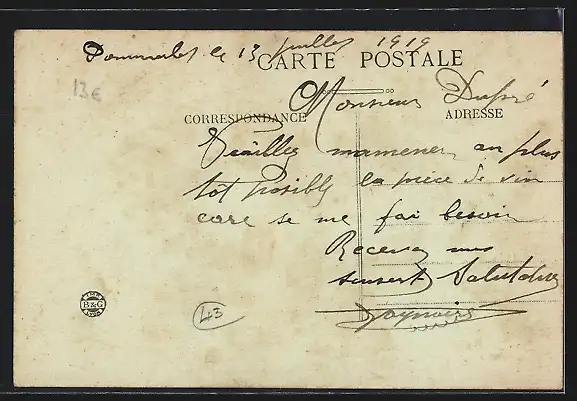 Dommarlet le 13 juillet 1919
13€
CARTE POSTALE
Monsieur Dupré
CORRESPONDANCE
ADRESSE
Veaillez mamener au plus
tot posible la piece de vin
care se me fai besoin
Recevez mes
sinsert Salutation
B&G
43